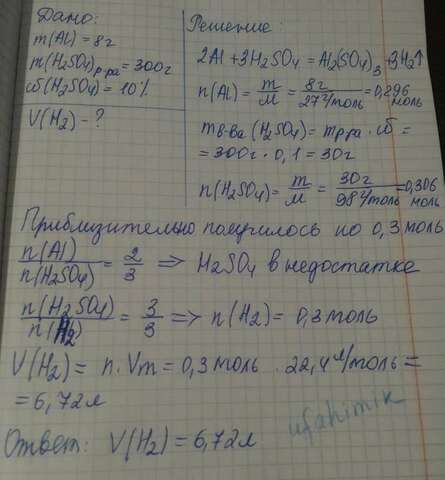 Дано:
m(Al) = 8г
m(H₂SO₄)р-ра = 300г
ω(H₂SO₄) = 10%
V(H₂) - ?
Решение:
2Al + 3H₂SO₄ = Al₂(SO₄)₃ + 3H₂↑
n(Al) = m/M = 8г/27г/моль = 0,296 моль
mв-ва (H₂SO₄) = mр-ра · ω =
= 300г · 0,1 = 30г
n(H₂SO₄) = m/M = 30г/98г/моль = 0,306 моль
Приблизительно получилось по 0,3 моль
n(Al)/n(H₂SO₄) = 2/3 => H₂SO₄ в недостатке
n(H₂SO₄)/n(H₂) = 3/3 => n(H₂) = 0,3 моль
V(H₂) = n · Vm = 0,3 моль · 22,4 л/моль =
= 6,72 л
Ответ: V(H₂) = 6,72 л
ufahimik